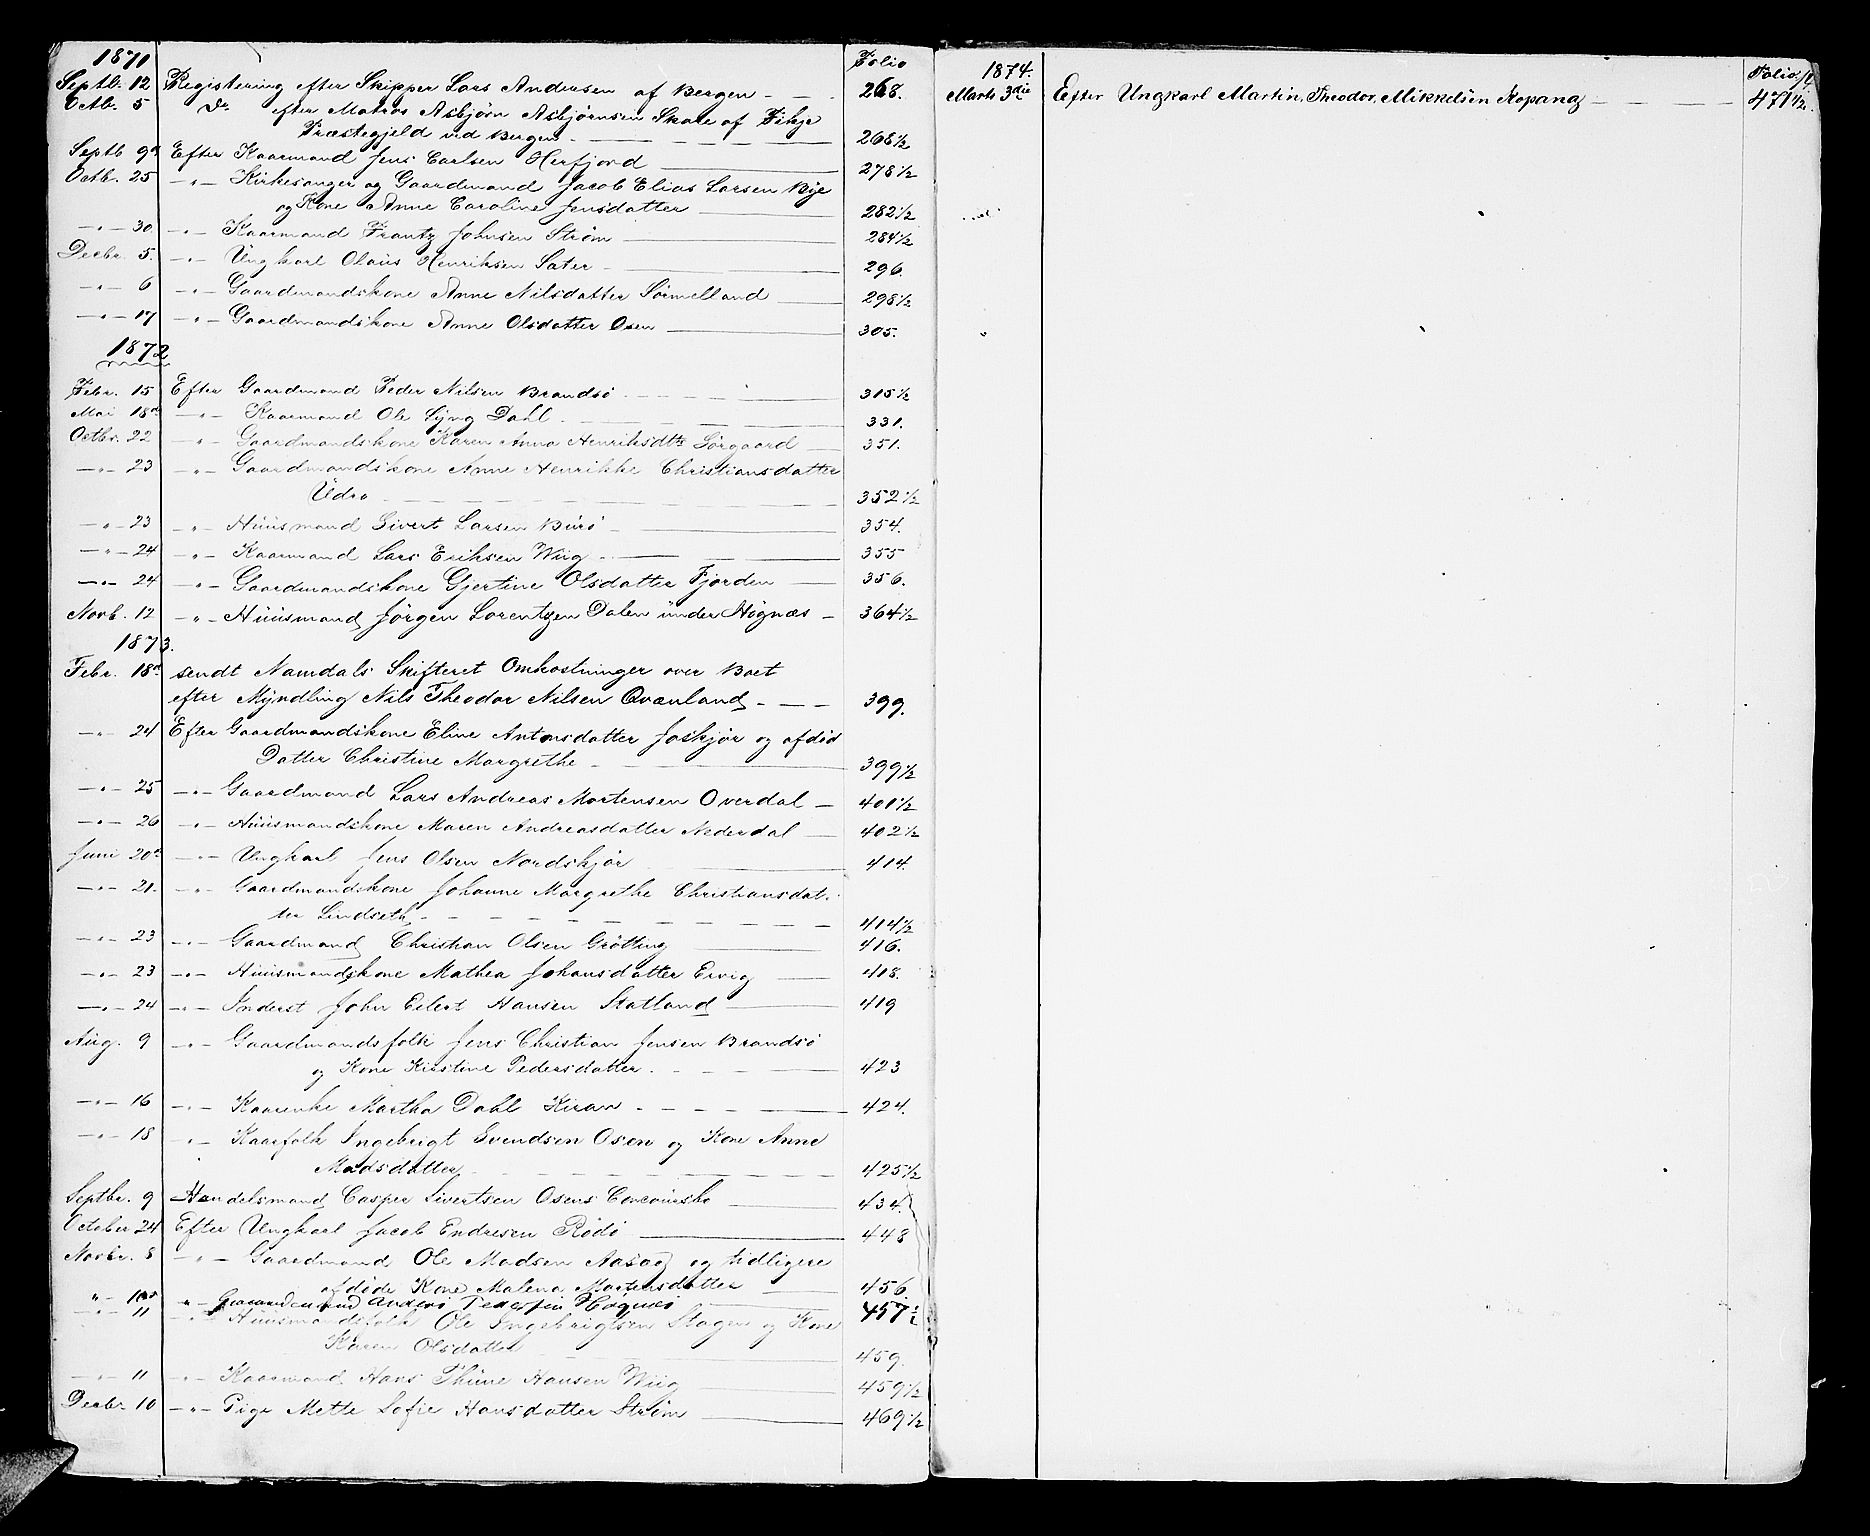 1871 Folio
Septb. 12 Registering efter Skipper Lars Andersen af Bergen 268.
Octb. 5 Do. efter Matros Asbjørn Asbjørnsen Skare af
Præstegjeld ved Bergen 268 1/2
Septb 9de Efter Kaarmand Jens Carlsen Herfjord 278 1/2
Octb. 25 -"- Kirkesanger og Gaardmand Jacob Elias Larsen Bye
og Kone Anne Caroline Jensdatter 282 1/2
-"- 30. -"- Kaarmand Frantz Johnsen Strøm 284 1/2
Decbr. 5. -"- Ungkarl Olaus Henriksen Sæter 296.
-"- 6 -"- Gaardmandskone Anne Nilsdatter Sörmelland 298 1/2
-"- 17 -"- Gaardmandskone Anne Olsdatter Osen 305.
1872
Febr. 15 Efter Gaardmand Peder Nilsen Brandsø 315 1/2
Mai 18de -"- Kaarmand Ole Lyng Dahl 331.
Octbr. 22 -"- Gaardmandskone Karen Anna Henriksdtr Sørgaard 351.
-"- 23 -"- Gaardmandskone Anne Henrikke Christiansdatter
Udrø 352 1/2
-"- 23 -"- Huusmand Sivert Larsen Burø 354.
-"- 24 -"- Kaarmand Lars Eriksen Wiig 355
-"- 24 -"- Gaardmandskone Gjertine Olsdatter Fjorden 356.
Novb. 12 -"- Huusmand Jørgen Lorentzen Dalen under Høgnæs 364 1/2
1873.
Febr. 18de sendt Namdals Skifteret Omkostninger over Boet
efter Myndling Nils Theodor Nilsen Qvænland 399.
-"- 24 Efter Gaardmandskone Eline Antonsdatter Joskjør og afdød
Datter Christine Margrethe 399 1/2
-"- 25 -"- Gaardmand Lars Andreas Mortensen Overdal 401 1/2
-"- 26 -"- Huusmandskone Maren Andreasdatter Nederdal 402 1/2
Juni 20de -"- Ungkarl Jens Olsen Nordskjør 414.
-"- 21. -"- Gaardmandskone Johanne Margrethe Christiansdat-
ter Lindseth 414 1/2
-"- 23 -"- Gaardmand Christian Olsen Grøtting 416.
-"- 23 -"- Huusmandskone Mathea Johansdatter Ervig 418.
-"- 24 -"- Inderst John Eilert Hansen Statland 419
Aug. 9 -"- Gaardmandsfolk Jens Christian Jensen Brandsø
og Kone Kirstine Pedersdatter 423
-"- 16 -"- Kaarenke Martha Dahl Kiran 424.
-"- 18 -"- Kaarfolk Ingebrigt Svendsen Osen og Kone Anne
Madsdatter 425 1/2
Septbr. 9 Handelsmand Casper Sivertsen Osens Concoursbo 434.
October 24 Efter Ungkarl Jacob Endresen Rødø 448
Novbr. 8 -"- Gaardmand Ole Madsen Aasag og tidligere
afdøde Kone Malena Martensdatter 456.
"- 10de "- Gaardmand Anders Pedersen Høgnes 457 1/2
-"- 11 -"- Huusmandsfolk Ole Ingebrigtsen Stagen og Kone
Karen Olsdatter 459.
-"- 11 -"- Kaarmand Hans Thune Hansen Wiig 459 1/2
Decbr. 10 -"- Pige Mette Sofie Hansdatter Strøm 469 1/2
1874. Folio
Marts 3die Efter Ungkarl Martin Theodor Mikkelsen Kopang 471 1/2.